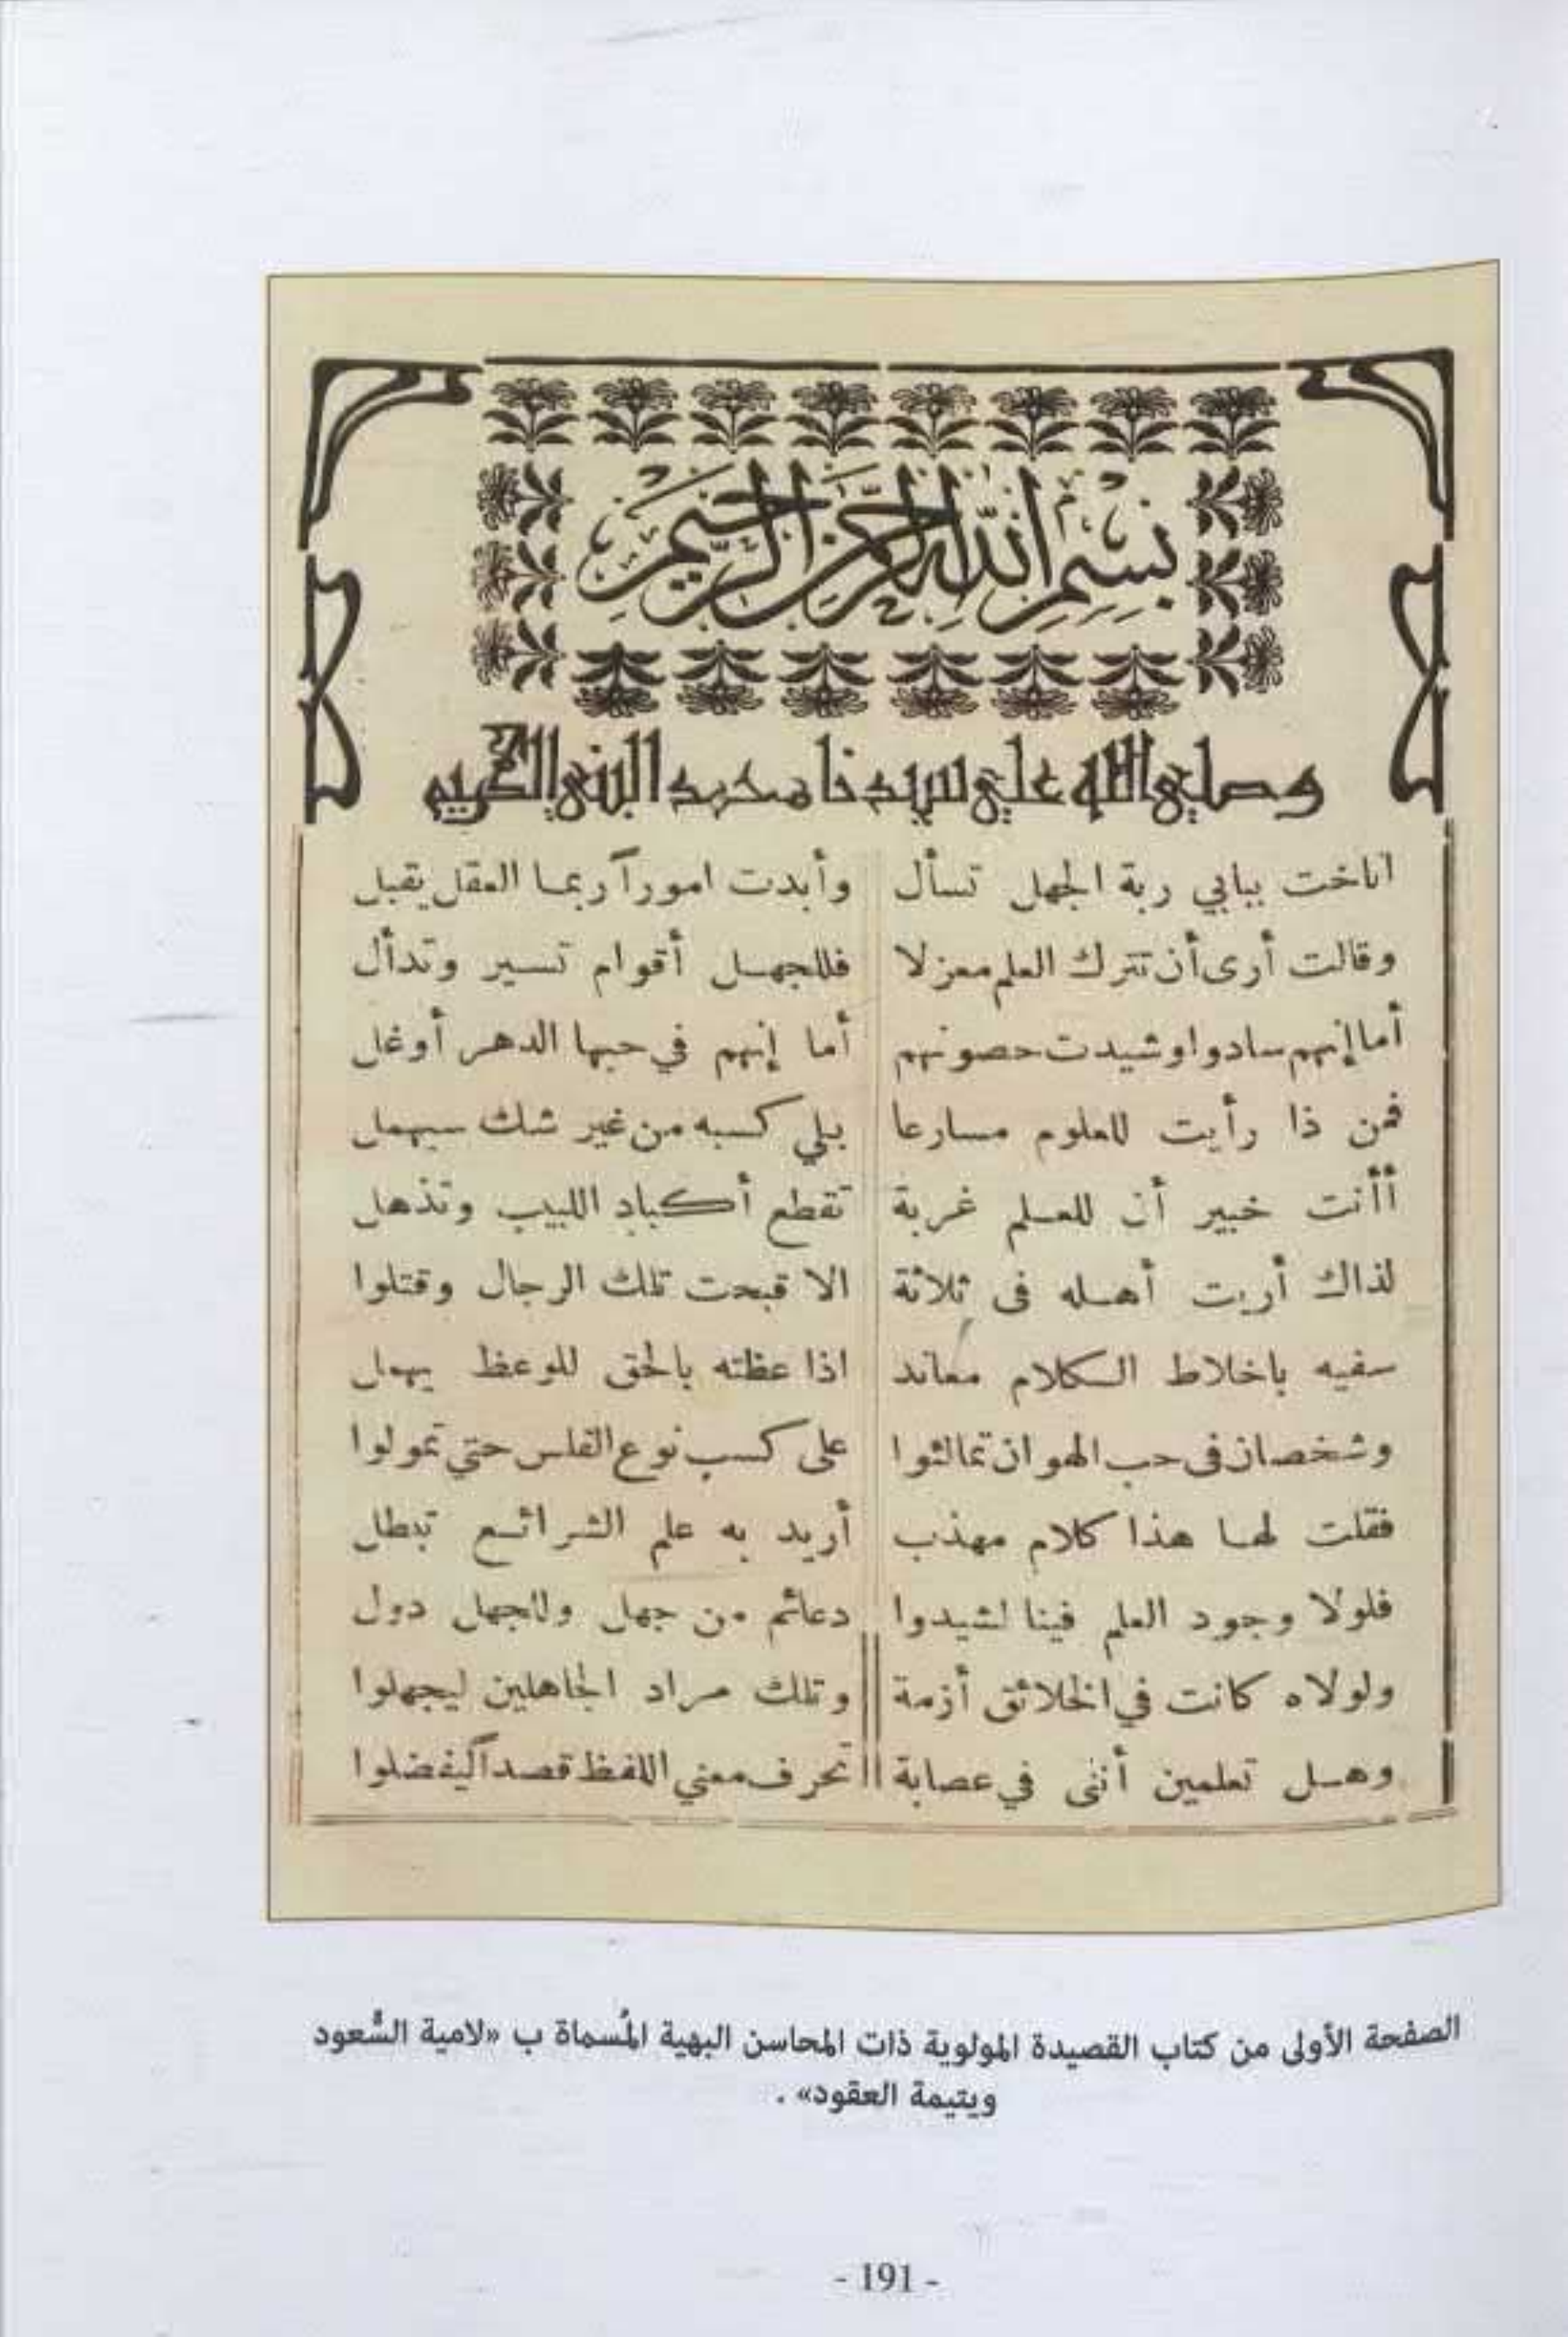 بسم الله الرحمن الرحيم
وصلى الله على سيدنا محمد النبي الكريم
اناخت ببابي ربة الجهل تسأل وأبدت اموراً ربما العقل يقبل
وقالت أرى أن تترك العلم معزلا فللجهل أقوام تسير وتدأل
أما إنهم سادوا وشيدت حصونهم أما إنهم في حبها الدهر أوغل
فمن ذا رأيت للعلوم مسارعا يلي كسبه من غير شك سيهمل
أأنت خبير أن للعلم غربة تقطع أكباد اللبيب وتذهل
لذاك أريت أهله فى ثلاثة الا قبحت تلك الرجال وقتلوا
سفيه باخلاط الكلام معاند اذا عظته بالحق للوعظ يهمل
وشخصان فى حب الهوان تمالئوا على كسب نوع الفلس حتي تمولوا
فقلت لها هذا كلام مهذب أريد به علم الشرائع تبطل
فلولا وجود العلم فينا لشيدوا دعائم من جهل وللجهل دول
ولولاه كانت في الخلائق أزمة وتلك مراد الجاهلين ليجهلوا
وهل تعلمين أننى في عصابة تحرف معني اللفظ قصداً ليفضلوا
الصفحة الأولى من كتاب القصيدة المولوية ذات المحاسن البهية المُسماة ب «لامية السُّعود
ويتيمة العقود» .
- 191 -